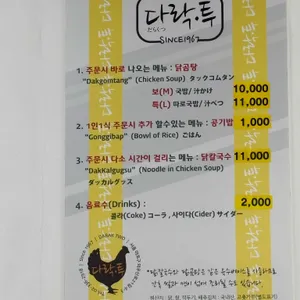 다락·투
だらくつ
SINCE1967
1. 주문시 바로 나오는 메뉴 : 닭곰탕
"Dakgomtang" (Chicken Soup) タックコムタン
보(M) 국밥/ 汁かけ 10,000
특(L) 따로국밥/ 汁べつ 11,000
2. 1인1식 주문시 추가 할수있는 메뉴 : 공기밥 1,000
"Gonggibap" (Bowl of Rice) ごはん
3. 주문시 다소 시간이 걸리는 메뉴 : 닭칼국수 11,000
"DakKalgugsu" (Noodle in Chicken Soup)
ダッカルグッス
4. 음료수(Drinks) : 2,000
콜라(Coke) コーラ , 사이다(Cider) サイダー
다락·투